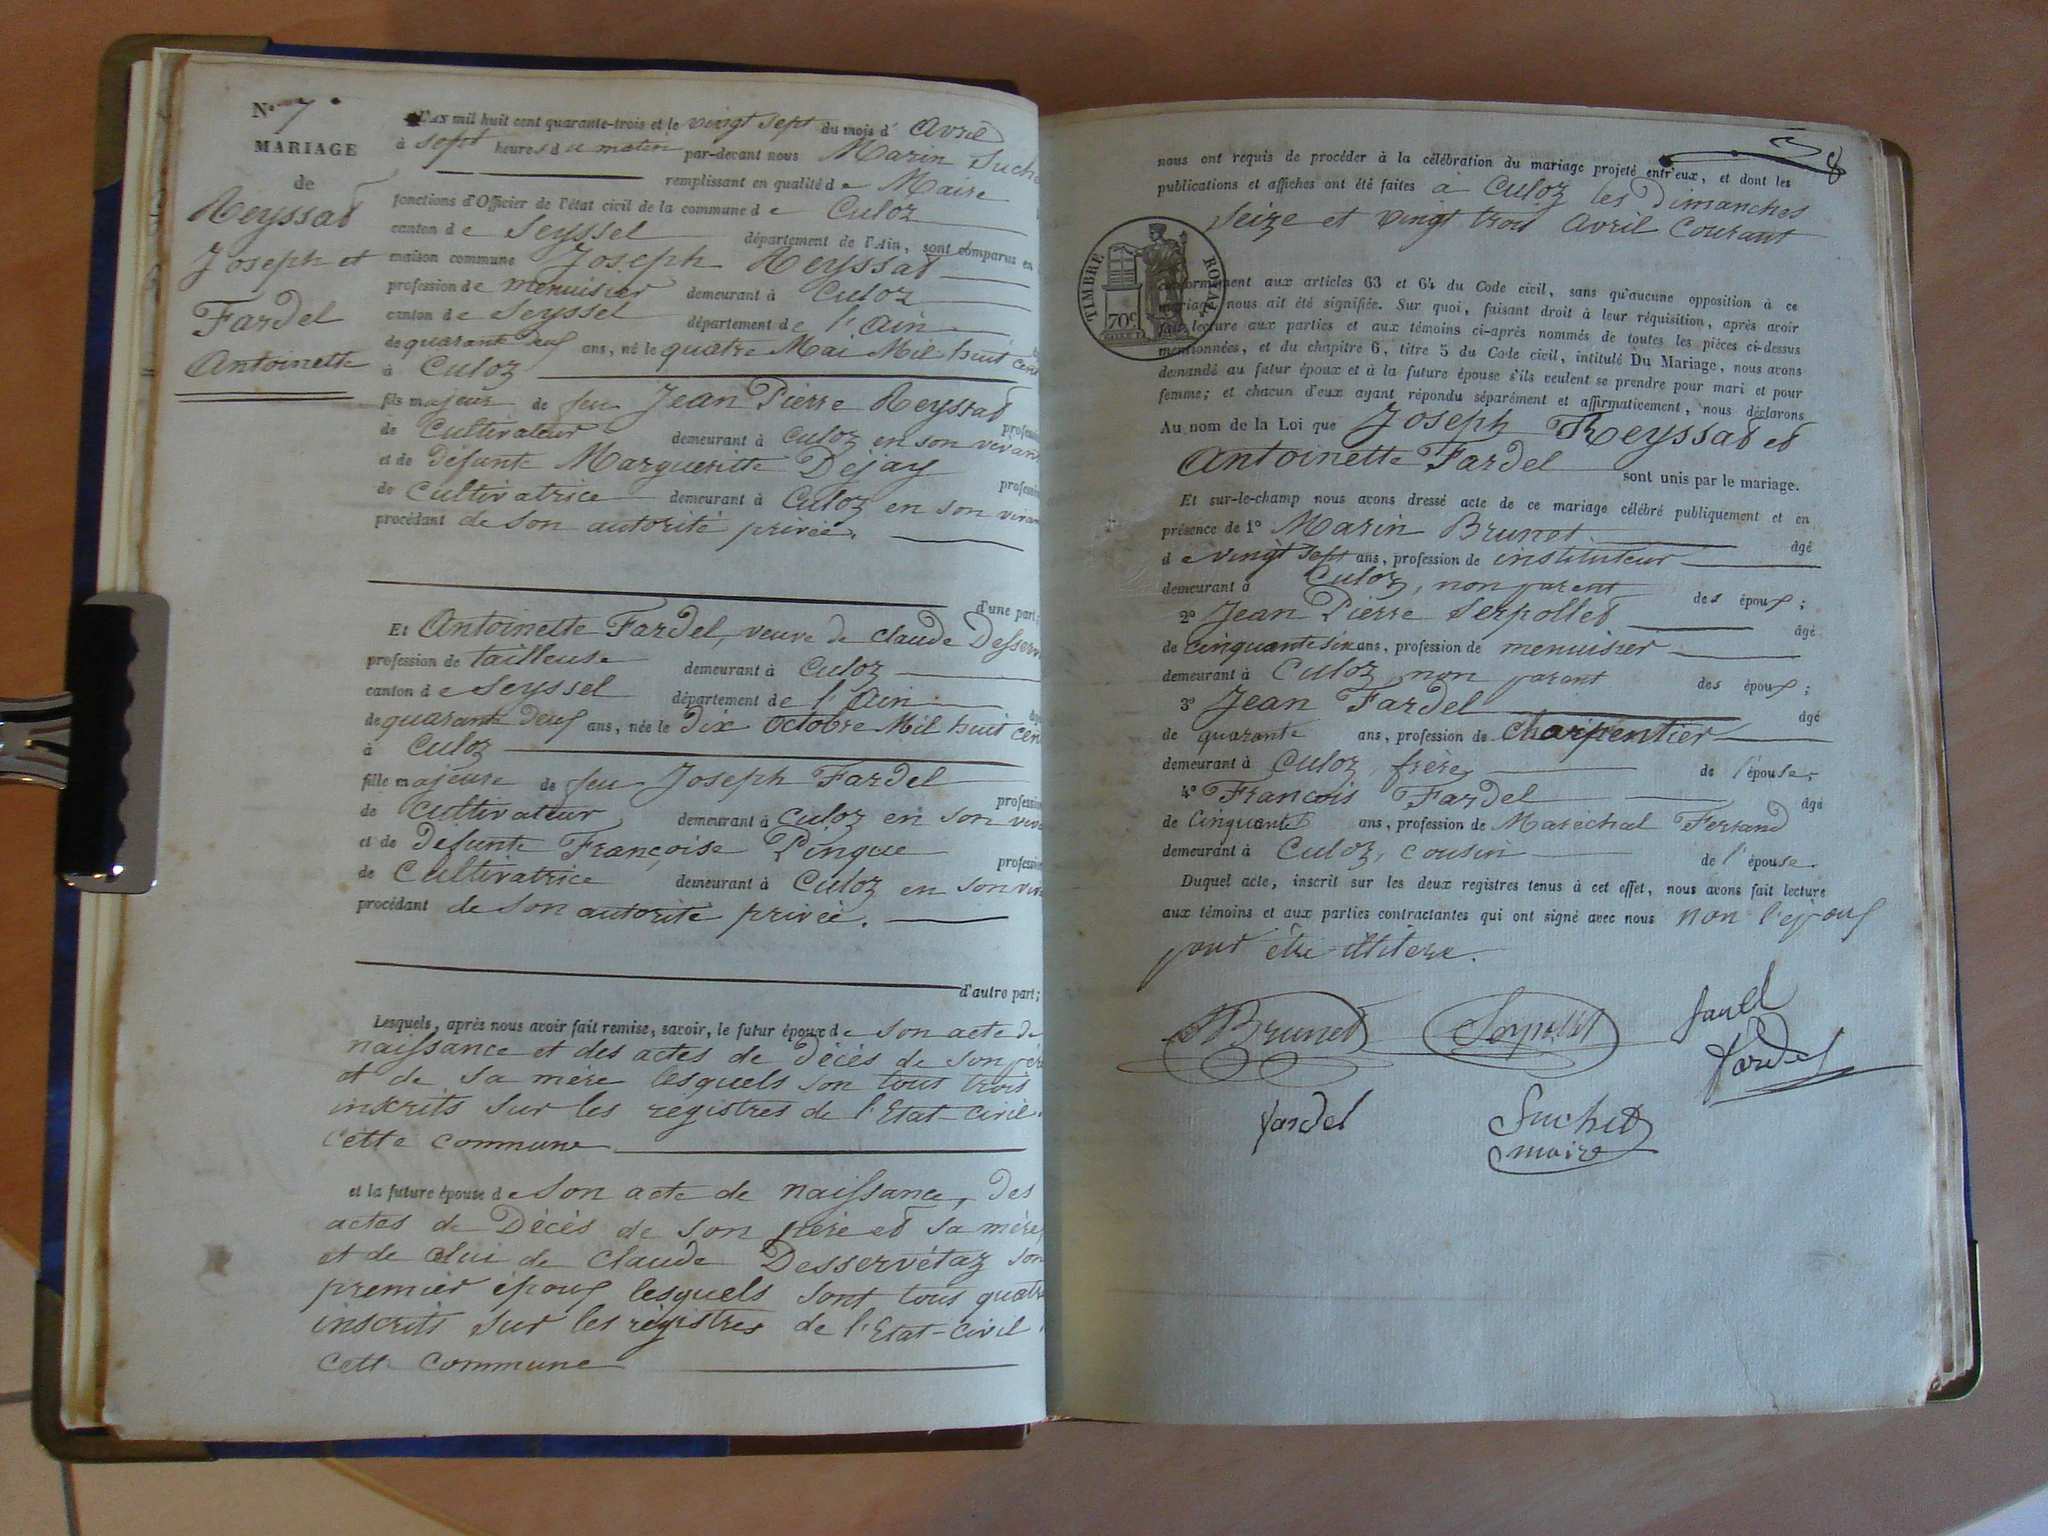 N.° 7
MARIAGE
de
Reyssat
Joseph et
Fardel
Antoinette
L'AN mil huit cent quarante-trois et le vingt sept du mois d' Avril
à sept heures du matin par-devant nous Marin Suche
remplissant en qualité de Maire
fonctions d'Officier de l'état civil de la commune de Culoz
canton de Seyssel département de l'Ain, sont comparus en
maison commune Joseph Reyssat
profession de menuisier demeurant à Culoz
canton de Seyssel département de l'Ain
de quarant ans, né le quatre Mai Mil huit cent
à Culoz
fils majeur de feu Jean Pierre Reyssat
profession
de Cultivateur demeurant à Culoz en son vivant
et de Défunte Margueritte Dejay
profession
de Cultivatrice demeurant à Culoz en son vivan
procédant de son autorité privée.
d'une part;
Et Antoinette Fardel, veuve de Claude Desserv
profession de tailleuse demeurant à Culoz
canton de Seyssel département de l'Ain
de quarante Deux ans, née le Dix Octobre Mil huit cen
à Culoz
fille majeure de feu Joseph Fardel
profession
de Cultivateur demeurant à Culoz en son viv
et de Défunte Françoise Pingue
profession
de Cultivatrice demeurant à Culoz en son viv
procédant de son autorité privée.
d'autre part;
Lesquels, après nous avoir fait remise, savoir, le futur époux de son acte de
naissance et des actes de Décès de son pèr
et de sa mère lesquels son tous trois
inscrits sur les registres de l'Etat-civil
cette commune
et la future épouse de son acte de naissance, des
actes de Décès de son père et sa mère,
et de celui de Claude Desservétaz son
premier époux lesquels sont tous quatr
inscrits sur les registres de l'Etat-civil
cette commune
8
nous ont requis de procéder à la célébration du mariage projeté entr'eux, et dont les
publications et affiches ont été faites à Culoz les Dimanches
seize et vingt trois Avril Courant
TIMBRE ROYAL
70c
conformément aux articles 63 et 64 du Code civil, sans qu'aucune opposition à ce
mariage nous ait été signifiée. Sur quoi, faisant droit à leur réquisition, après avoir
fait lecture aux parties et aux témoins ci-après nommés de toutes les pièces ci-dessus
mentionnées, et du chapitre 6, titre 5 du Code civil, intitulé Du Mariage, nous avons
demandé au futur époux et à la future épouse s'ils veulent se prendre pour mari et pour
femme; et chacun d'eux ayant répondu séparément et affirmativement, nous déclarons
Au nom de la Loi que Joseph Reyssat et
Antoinette Fardel sont unis par le mariage.
Et sur-le-champ nous avons dressé acte de ce mariage célébré publiquement et en
présence de 1° Marin Brunet âgé
de vingt sept ans, profession de instituteur
demeurant à Culoz, non parent des époux;
2° Jean Pierre Serpollet âgé
de Cinquante six ans, profession de menuisier
demeurant à Culoz, non parant des époux;
3° Jean Fardel âgé
de quarante ans, profession de Charpentier
demeurant à Culoz frère, de l'épouse;
4° François Fardel âgé
de Cinquante ans, profession de Maréchal Ferrand
demeurant à Culoz, cousin de l'épouse.
Duquel acte, inscrit sur les deux registres tenus à cet effet, nous avons fait lecture
aux témoins et aux parties contractantes qui ont signé avec nous non l'époux
pour être illitere.
Brunet Serpollet fardel
fardel
fardel Suchet
maire